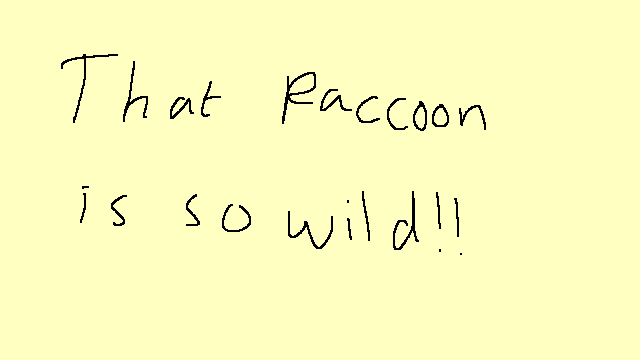 That Raccoon
is so wild!!